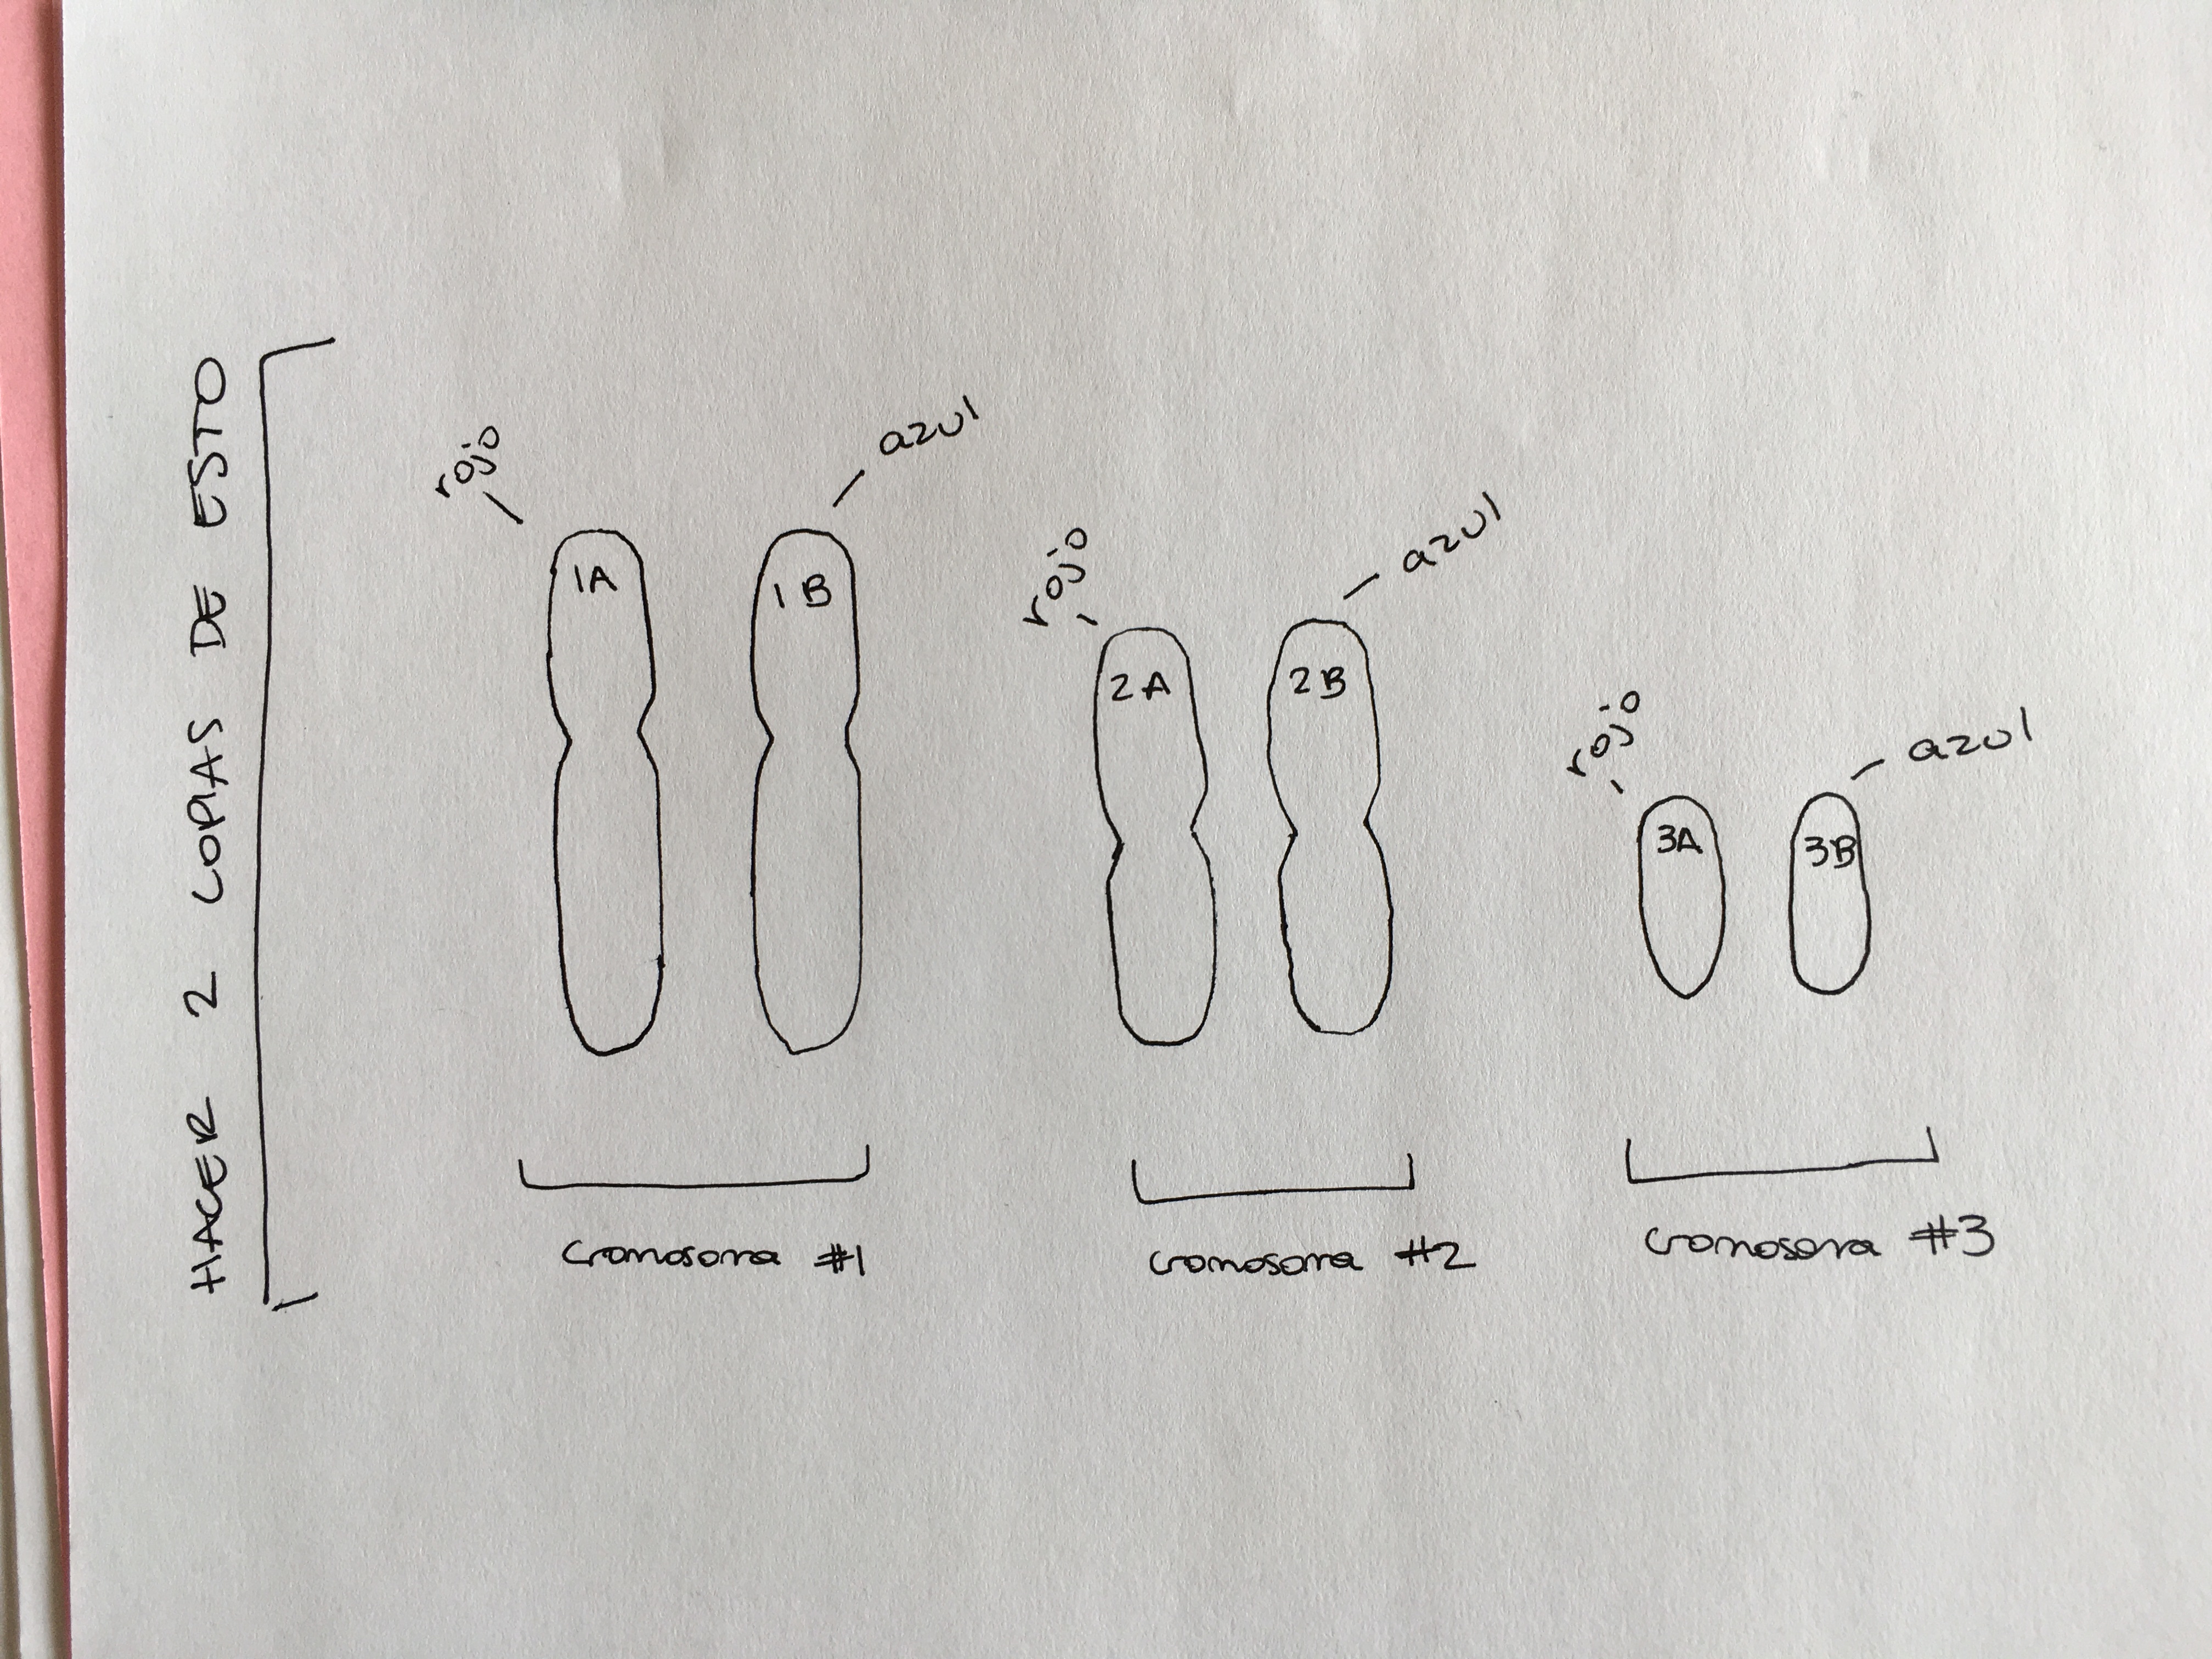 HACER 2 COPIAS DE ESTO
rojo
1A
1B
azul
cromosoma #1
rojo
2A
2B
azul
cromosoma #2
rojo
3A
3B
azul
cromosoma #3